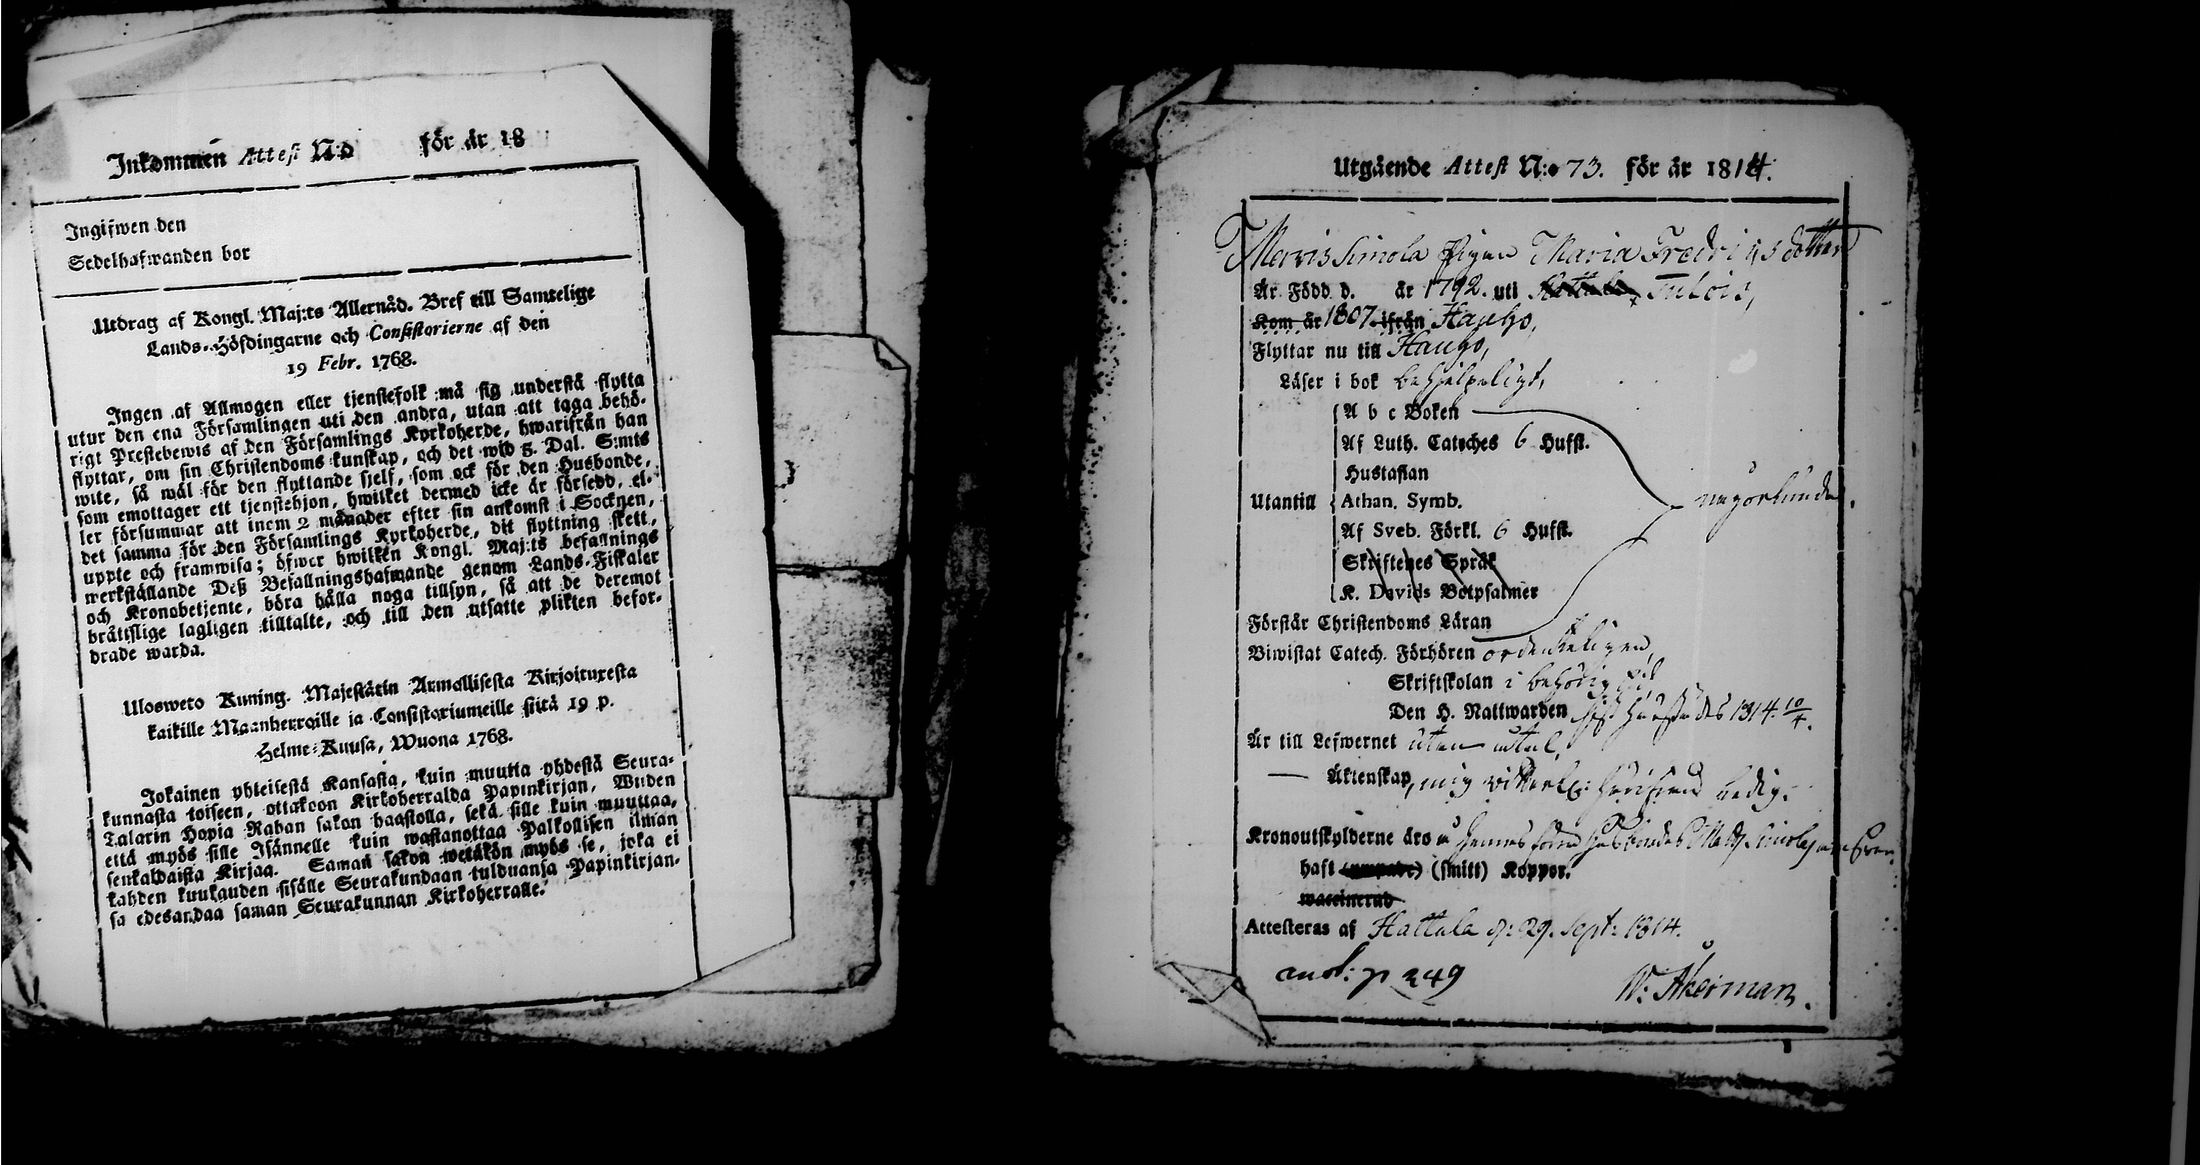 Inkommen Attest N:o för år 18
Ingifwen den
Sedelhafwanden bor
Utdrag af Kongl. Maj:ts Allernåd. Bref till Samtelige
Lands-Höfdingarne och Consistorierne af den
19 Febr. 1768.
Ingen af Allmogen eller tjenstefolk må sig understå flytta
utur den ena Församlingen uti den andra, utan att taga behö-
rigt Prestebewis af den Församlings Kyrkoherde, hwarifrån han
flyttar, om sin Christendoms kunskap, och det wid 5. Dal. S:mts
wite, så wäl för den flyttande sjelf, som ock för den Husbonde,
som emottager ett tjenstehjon, hwilket dermed icke är försedd, el-
ler försummar att inom 2 månader efter sin ankomst i Socknen,
det samma för den Församlings Kyrkoherde, dit flyttning skett,
uppte och framwisa; öfwer hwilken Kongl. Maj:ts befallnings
werkställande Deß Befallningshafwande genom Lands-Fiskaler
och Kronobetjente, böra hålla noga tillsyn, så att de deremot
bråttslige lagligen tilltalte, och till den utsatte plikten befor-
drade warda.
Ulosweto Kuning. Majestätin Armollisesta Kirjoituxesta
kaikille Maanherroille ja Consistoriumeille siitä 19 p.
Helme-Kuusa, Wuona 1768.
Jokainen yhteisestä Kansasta, kuin muutta yhdestä Seura-
kunnasta toiseen, ottakoon Kirkoherralda Papinkirjan, Wiiden
Talarin Hopia Rahan sakon haastolla, sekä sille kuin muuttaa,
että myös sille Isännelle kuin wastanottaa Palkollisen ilman
senkaldaista Kirjaa. Saman sakon wetäkön myös se, joka ei
kahden kuukauden sisälle Seurakundaan tulduansa Papinkirjan-
sa edesandaa saman Seurakunnan Kirkoherralle.
Utgående Attest N:o 73. för år 1814.
Mervis Simola Pigan Maria Fredricsdotter
Är Född d. år 1792. uti Hattula, Tulois,
Kom år 1807. ifrån Hauho,
Flyttar nu till Hauho,
Läser i bok behjelpeligt,
A b c Boken
Af Luth. Cateches 6 Hufst.
Hustaflan
Utantill Athan. Symb.
Af Sveb. Förkl. 6 Hufst.
Skriftenes Språk
K. Davids Botpsalmer
Förstår Christendoms Läran
Biwistat Catech. Förhören ordenteligen,
Skriftskolan i behörig tid
Den H. Nattwarden sist 1814. 10/4.
Är till Lefwernet utan
Äktenskap, mig ledig.
Kronoutskylderne äro
haft (smitt) Koppor.
Attesteras af Hattula d. 29. Sept: 1814.
p 249
W. Åkerman.